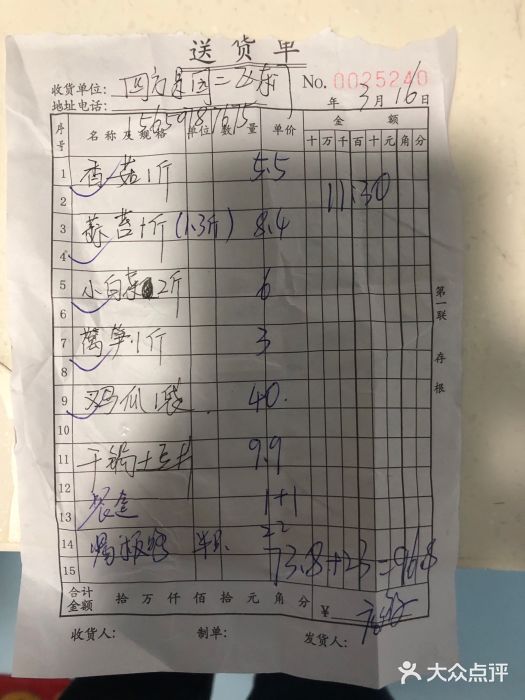 送货单
收货单位: 四方景园二区东 No. 0025240
地址电话: 15659787675 年 3 月 16 日
序号 名称及规格 单位 数量 单价 金额
十 万 千 百 十 元 角 分
1 香菇1斤 5.5
2 11:30
3 蒜苔1斤 (1.3斤) 8.4
4
5 小白菜 2斤 6
6
7 莴笋1斤 3
8
9 鸡爪1袋 40.
10
11 干锅土豆片 9.9
12
13 餐盒 1+1
14 22
15 73.8+23=96.8
合计金额 拾 万 仟 佰 拾 元 角 分 ¥
收货人: 制单: 发货人:
第一联 存根
大众点评